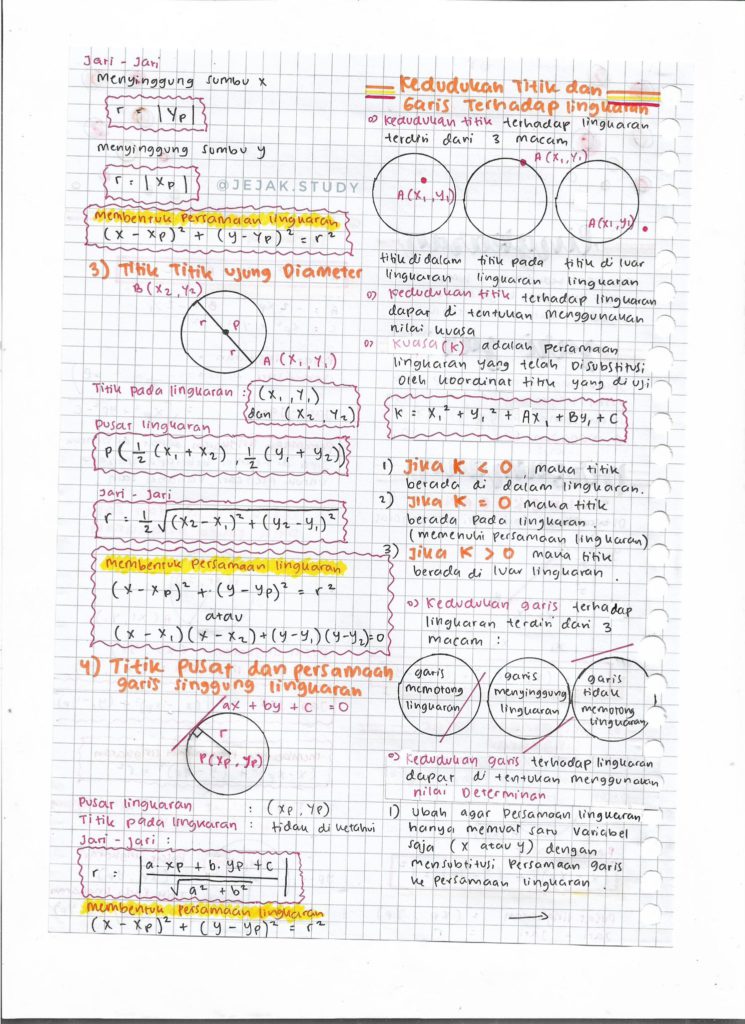 Jari - Jari
Menyinggung sumbu x
r = |Yp|
Menyinggung sumbu y
r = |Xp|
@JEJAK.STUDY
Membentuk Persamaan lingkaran
(x - xp)² + (y - yp)² = r²
3) Titik Titik ujung Diameter
B (X₂, Y₂)
r
P
r
A (X₁, Y₁)
Titik pada lingkaran : (X₁, Y₁)
dan (X₂, Y₂)
Pusat lingkaran
P(½ (X₁ + X₂), ½ (Y₁ + Y₂))
Jari - Jari
r = ½ √(X₂ - X₁)² + (Y₂ - Y₁)²
Membentuk Persamaan lingkaran
(x - xp)² + (y - yp)² = r²
atau
(x - x₁)(x - x₂) + (y - y₁)(y - y₂) = 0
4) Titik Pusat dan persamaan
garis singgung lingkaran
ax + by + c = 0
r
P(Xp, Yp)
Pusat lingkaran : (Xp, Yp)
Titik pada lingkaran : tidak diketahui
Jari - Jari :
r = |a. xp + b. yp + c / √a² + b²|
Membentuk persamaan lingkaran
(x - xp)² + (y - yp)² = r²
Kedudukan Titik dan
Garis Terhadap lingkaran
Kedudukan titik terhadap lingkaran
terdiri dari 3 macam
A(X₁, Y₁)
A(X₁, Y₁)
A(X₁, Y₁)
titik di dalam titik pada titik di luar
lingkaran lingkaran lingkaran
Kedudukan titik terhadap lingkaran
dapat di tentukan menggunakan
nilai kuasa
Kuasa (K) adalah persamaan
lingkaran yang telah Disubstitusi
oleh koordinat titik yang di uji
K = X₁² + Y₁² + AX₁ + BY₁ + C
1) Jika K < 0, maka titik
berada di dalam lingkaran.
2) Jika K = 0 maka titik
berada pada lingkaran.
(memenuhi persamaan lingkaran)
3) Jika K > 0 maka titik
berada di luar lingkaran.
Kedudukan garis terhadap
lingkaran terdiri dari 3
macam :
garis
memotong
lingkaran
garis
menyinggung
lingkaran
garis
tidak
memotong
lingkaran
Kedudukan garis terhadap lingkaran
dapat di tentukan menggunakan
nilai Determinan
1) Ubah agar persamaan lingkaran
hanya memuat satu variabel
saja (x atau y) dengan
mensubtitusi persamaan garis
ke persamaan lingkaran.